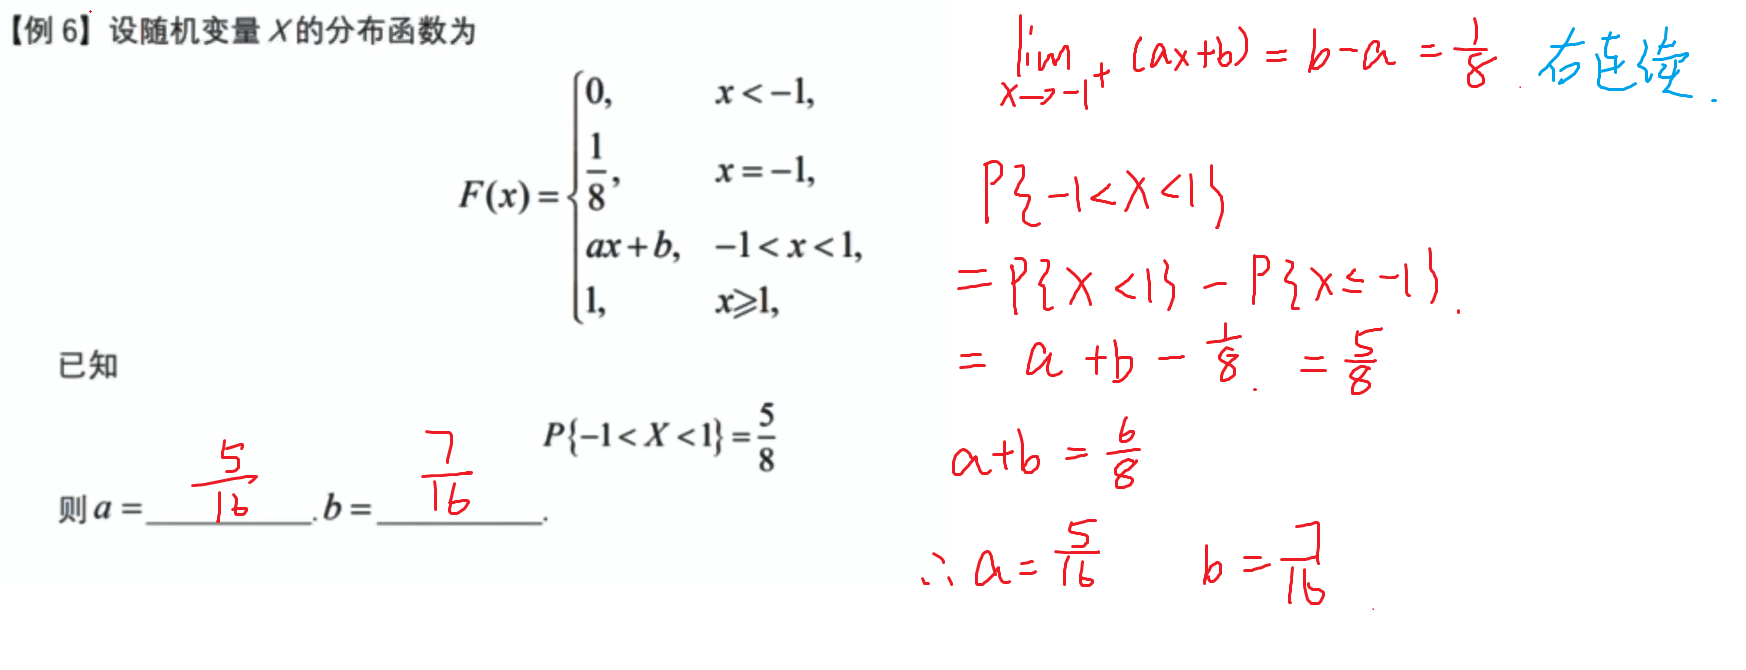 【例 6】设随机变量 X 的分布函数为
F(x) = { 0, x < −1,
1/8, x = −1,
ax + b, −1 < x < 1,
1, x ⩾ 1,
已知
P{−1 < X < 1} = 5/8
则 a = 5/16 . b = 7/16 .
lim x→−1⁺ (ax+b) = b−a = 1/8 . 右连续.
P{−1<X<1}
= P{X<1} − P{X≤−1}.
= a+b − 1/8. = 5/8
a+b = 6/8
∴ a = 5/16 b = 7/16 .